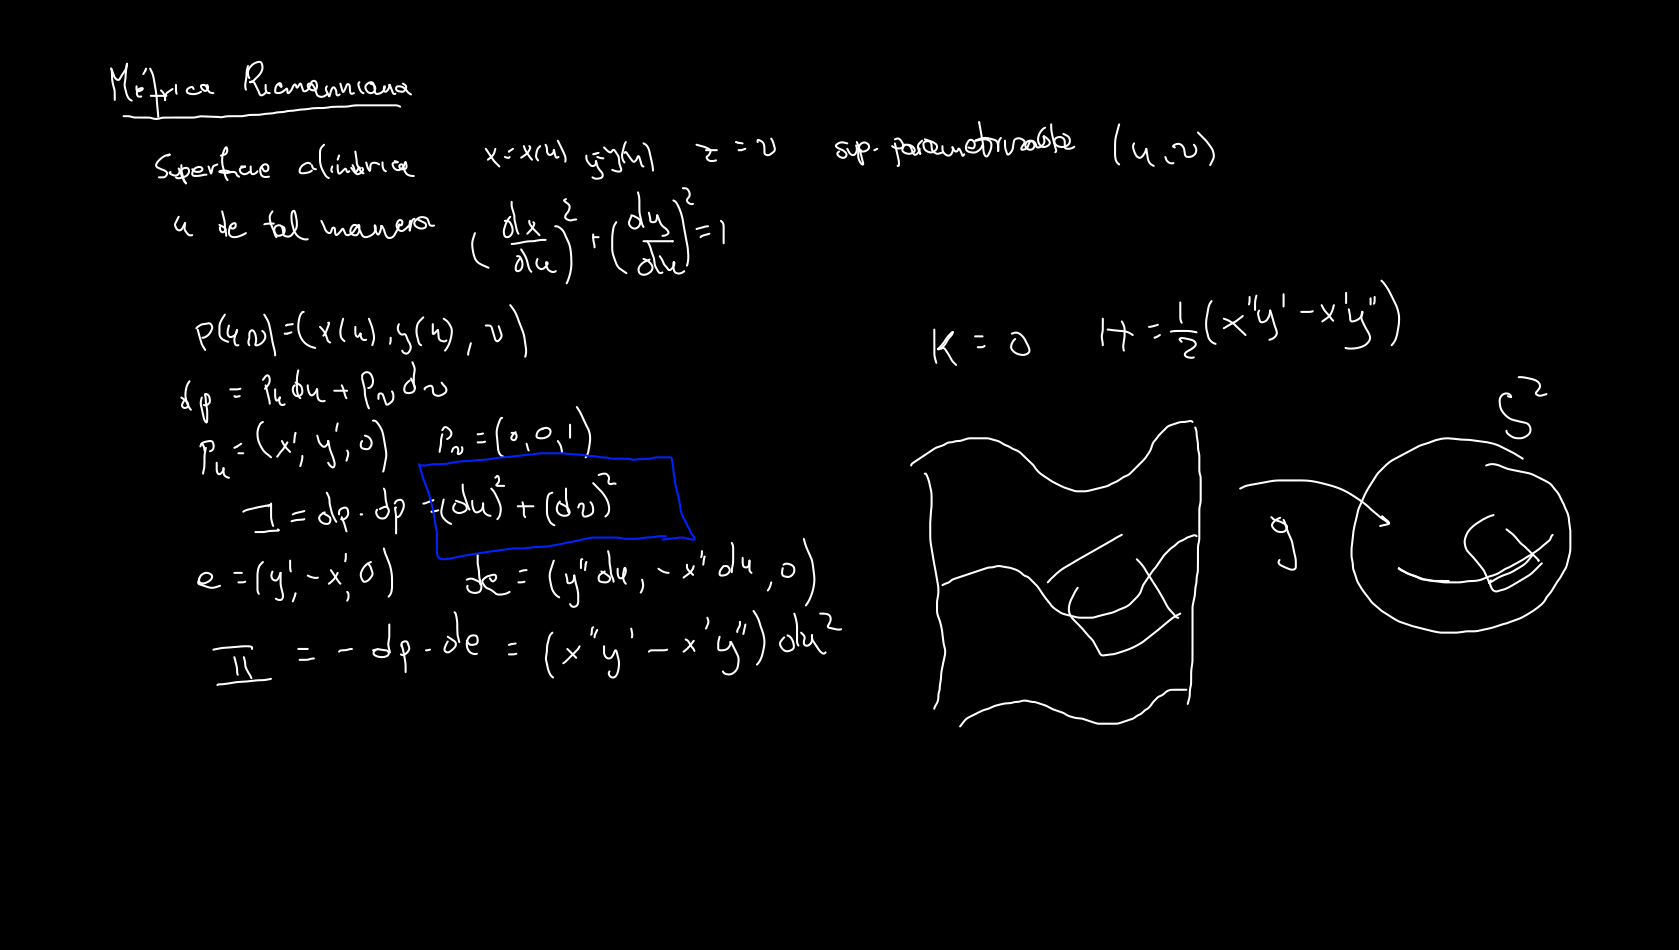 Métrica Riemanniana
Superficie cilíndrica x=x(u) y=y(u) z=v sup. parametrizable (u,v)
u de tal manera (dx/du)² + (dy/du)² = 1
p(u,v)=(x(u), y(u), v)
dp = p_u du + p_v dv
p_u = (x', y', 0) p_v = (0,0,1)
I = dp · dp = (du)² + (dv)²
e = (y', -x', 0) de = (y'' du, -x'' du, 0)
II = - dp · de = (x''y' - x'y'') du²
K = 0 H = 1/2 (x''y' - x'y'')
S²
g